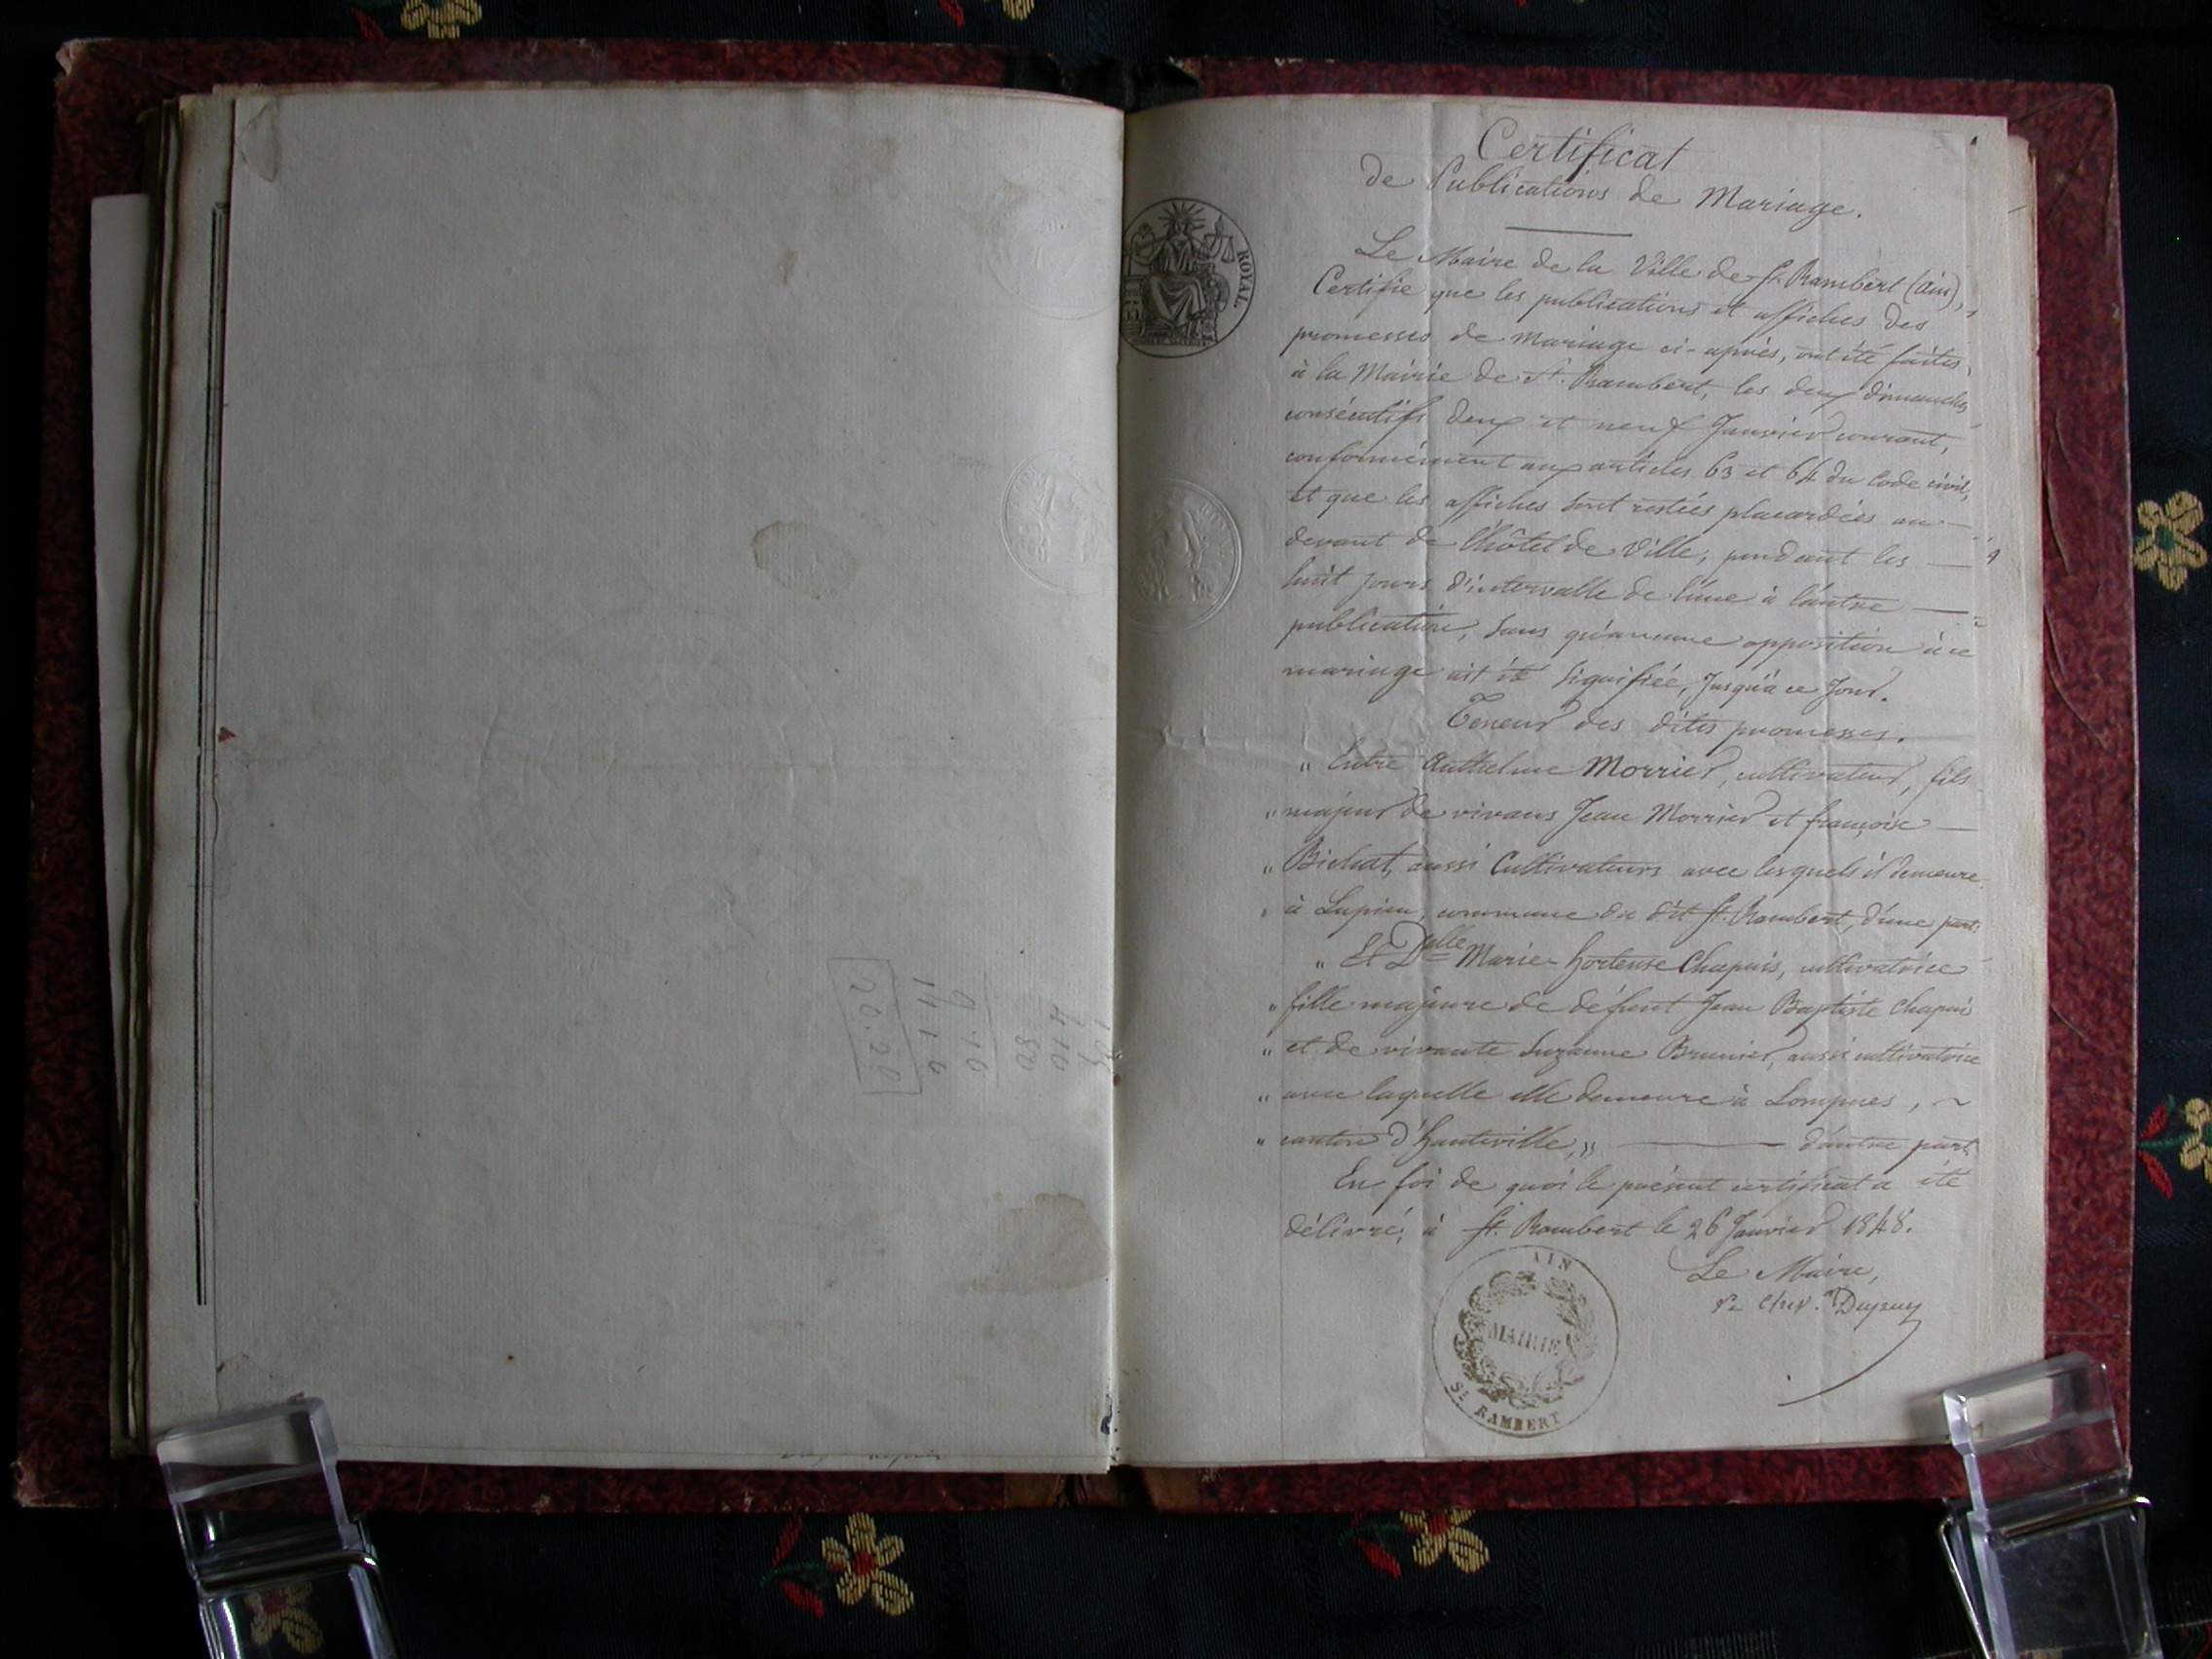 105
4 10
80
9.10
11 1 0
20.20
ROYAL
Certificat
de Publications de Mariage.
Le Maire de la Ville de St. Rambert (ain),
Certifie que les publications et affiches des
promesses de mariage ci-après, ont été faites,
à la Mairie de St. Rambert, les deux dimanches
consécutifs deux et neuf Janvier courant,
conformément aux articles 63 et 64 du Code civil,
et que les affiches sont restées placardées au
devant de l'hôtel de Ville, pendant les
huit jours d'intervalle de l'une à l'autre
publication, sans qu'aucune opposition à ce
mariage ait été signifiée, jusqu'à ce jour.
Teneur des dites promesses.
" Entre Anthelme Morrier, cultivateur, fils
" majeur de vivans Jean Morrier et françoise
" Bichat, aussi Cultivateurs avec lesquels il demeure
" à Lupieu, commune du dit St. Rambert, d'une part.
" Et Delle Marie-hortense Chapuis, cultivatrice
" fille majeure de défunt Jean Baptiste Chapuis
" et de vivante Suzanne Brunier, aussi cultivatrice
" avec laquelle elle demeure à Lompnes,
" canton d'hauteville, " d'autre part.
En foi de quoi le présent certificat a été
délivré, à St. Rambert le 26 Janvier 1848.
Le Maire,
AIN
MAIRIE
St RAMBERT